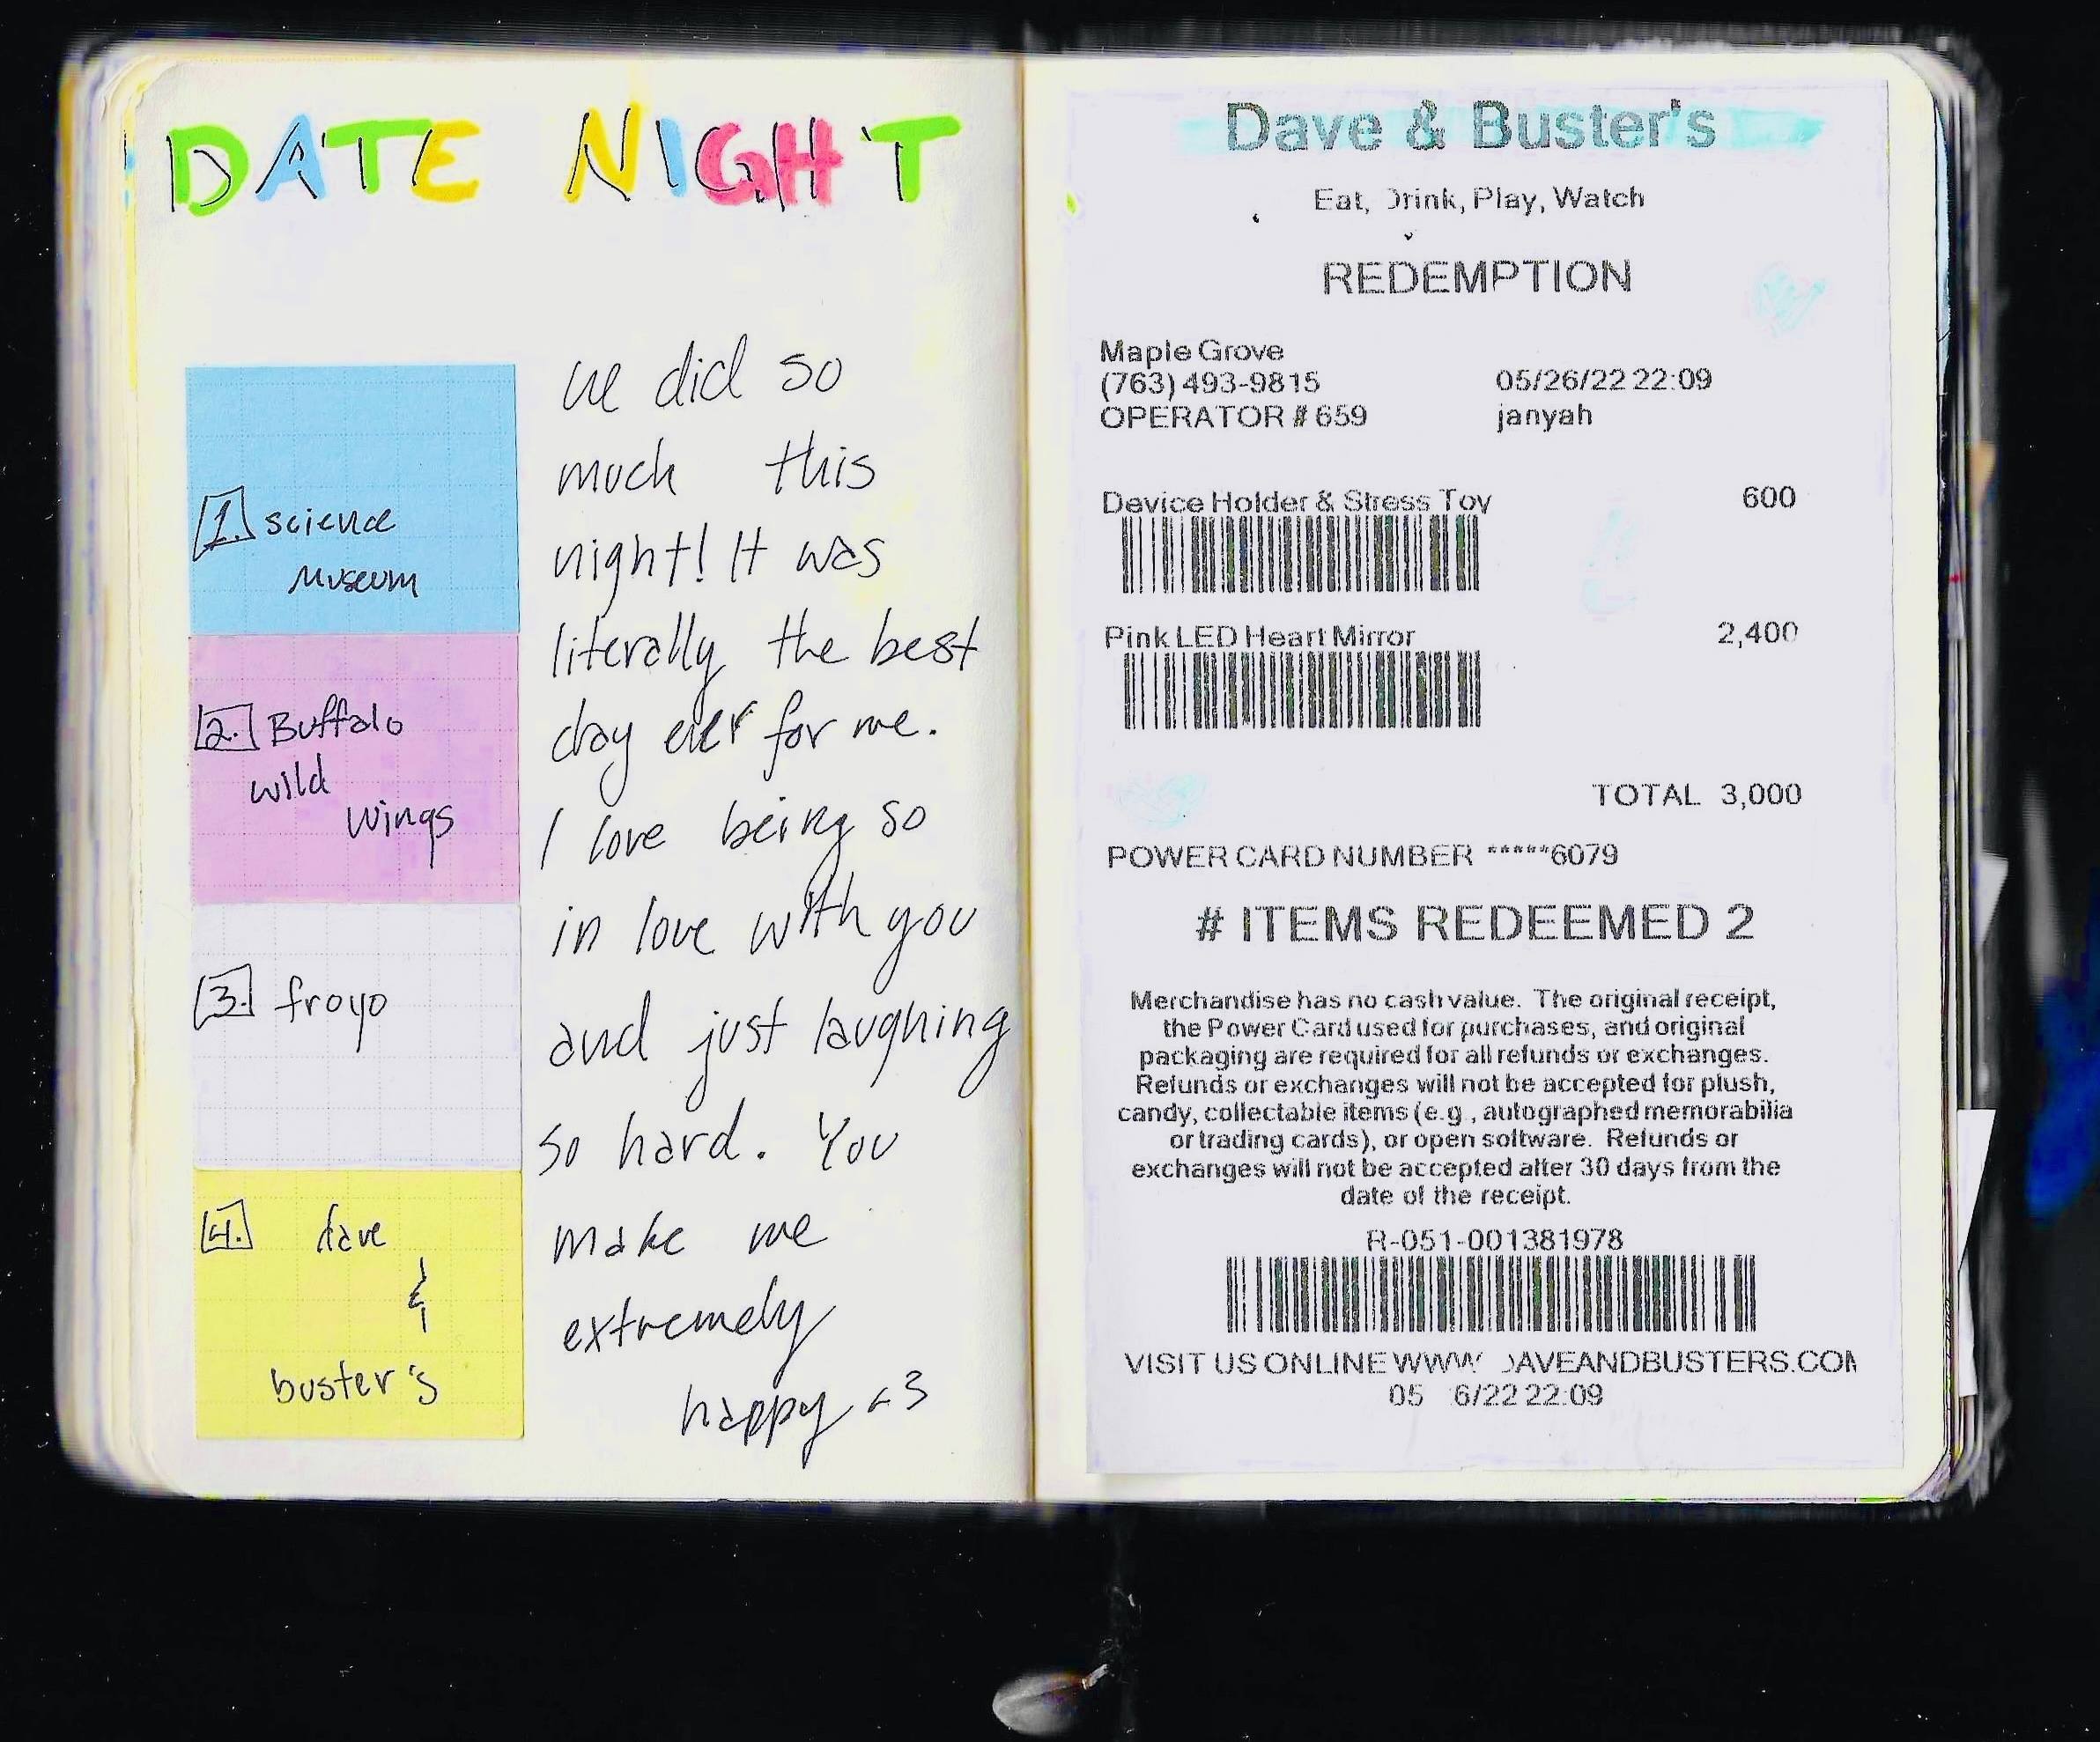 DATE NIGHT
1. science
museum
2. Buffalo
wild
wings
3. froyo
4. dave
&
buster's
we did so
much this
night! It was
literally the best
day ever for me.
I love being so
in love with you
and just laughing
so hard. You
make me
extremely
happy <3
Dave & Buster's
Eat, Drink, Play, Watch
REDEMPTION
Maple Grove
(763) 493-9815 05/26/22 22:09
OPERATOR # 659 janyah
Device Holder & Stress Toy 600
Pink LED Heart Mirror 2,400
TOTAL 3,000
POWER CARD NUMBER *****6079
# ITEMS REDEEMED 2
Merchandise has no cash value. The original receipt,
the Power Card used for purchases, and original
packaging are required for all refunds or exchanges.
Refunds or exchanges will not be accepted for plush,
candy, collectable items (e.g., autographed memorabilia
or trading cards), or open software. Refunds or
exchanges will not be accepted after 30 days from the
date of the receipt.
R-051-001381978
VISIT US ONLINE WWW DAVEANDBUSTERS.COM
05 6/22 22:09